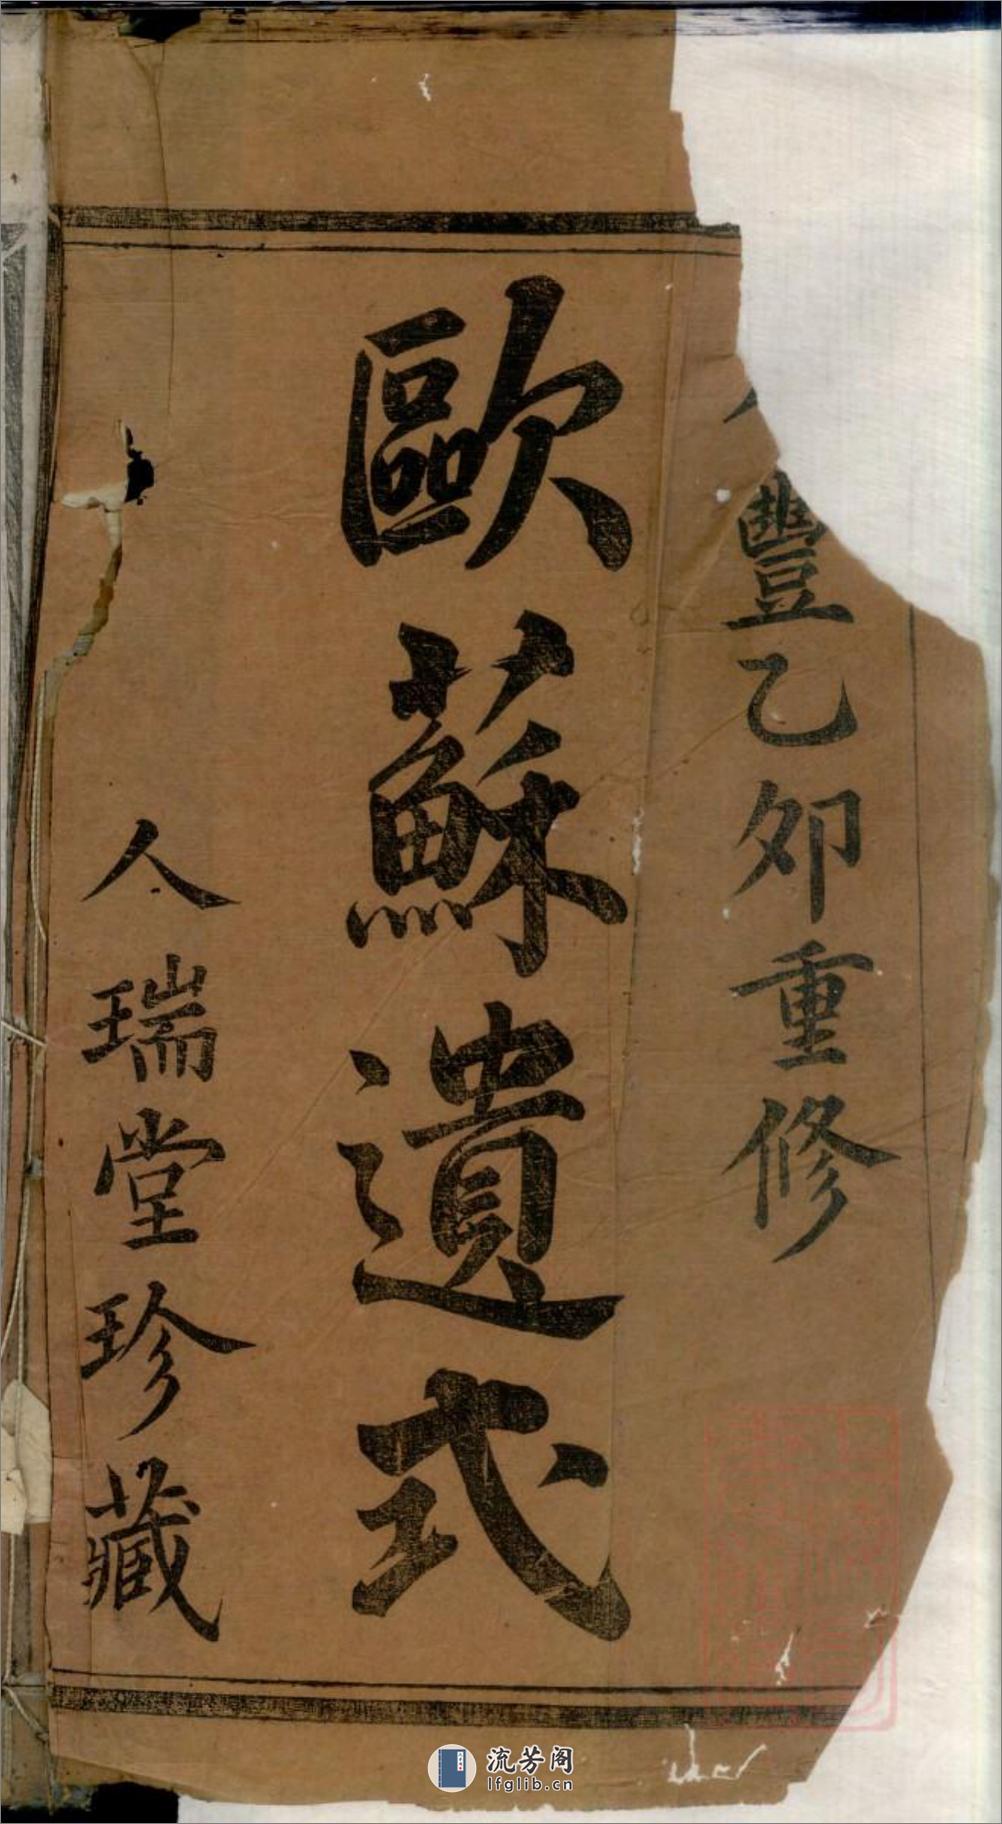 豐乙卯重修
歐蘇遺式
人瑞堂珍藏
流芳阁
lfglib.cn